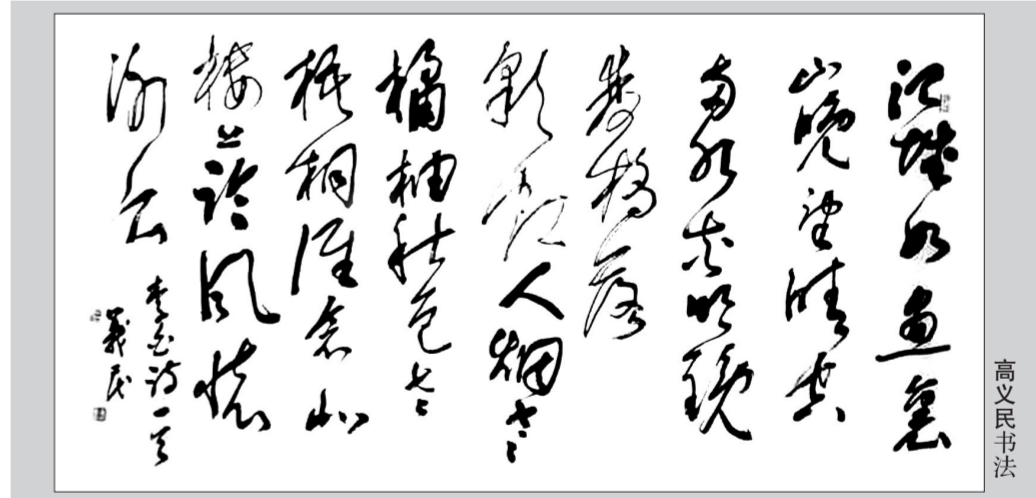 江城如畫裏
山晚望晴空
两水夹明镜
雙橋落
彩虹人烟寒
橘柚秋色老
梧桐谁念北
楼上临风怀
谢公
李白诗一首
義民
高义民书法